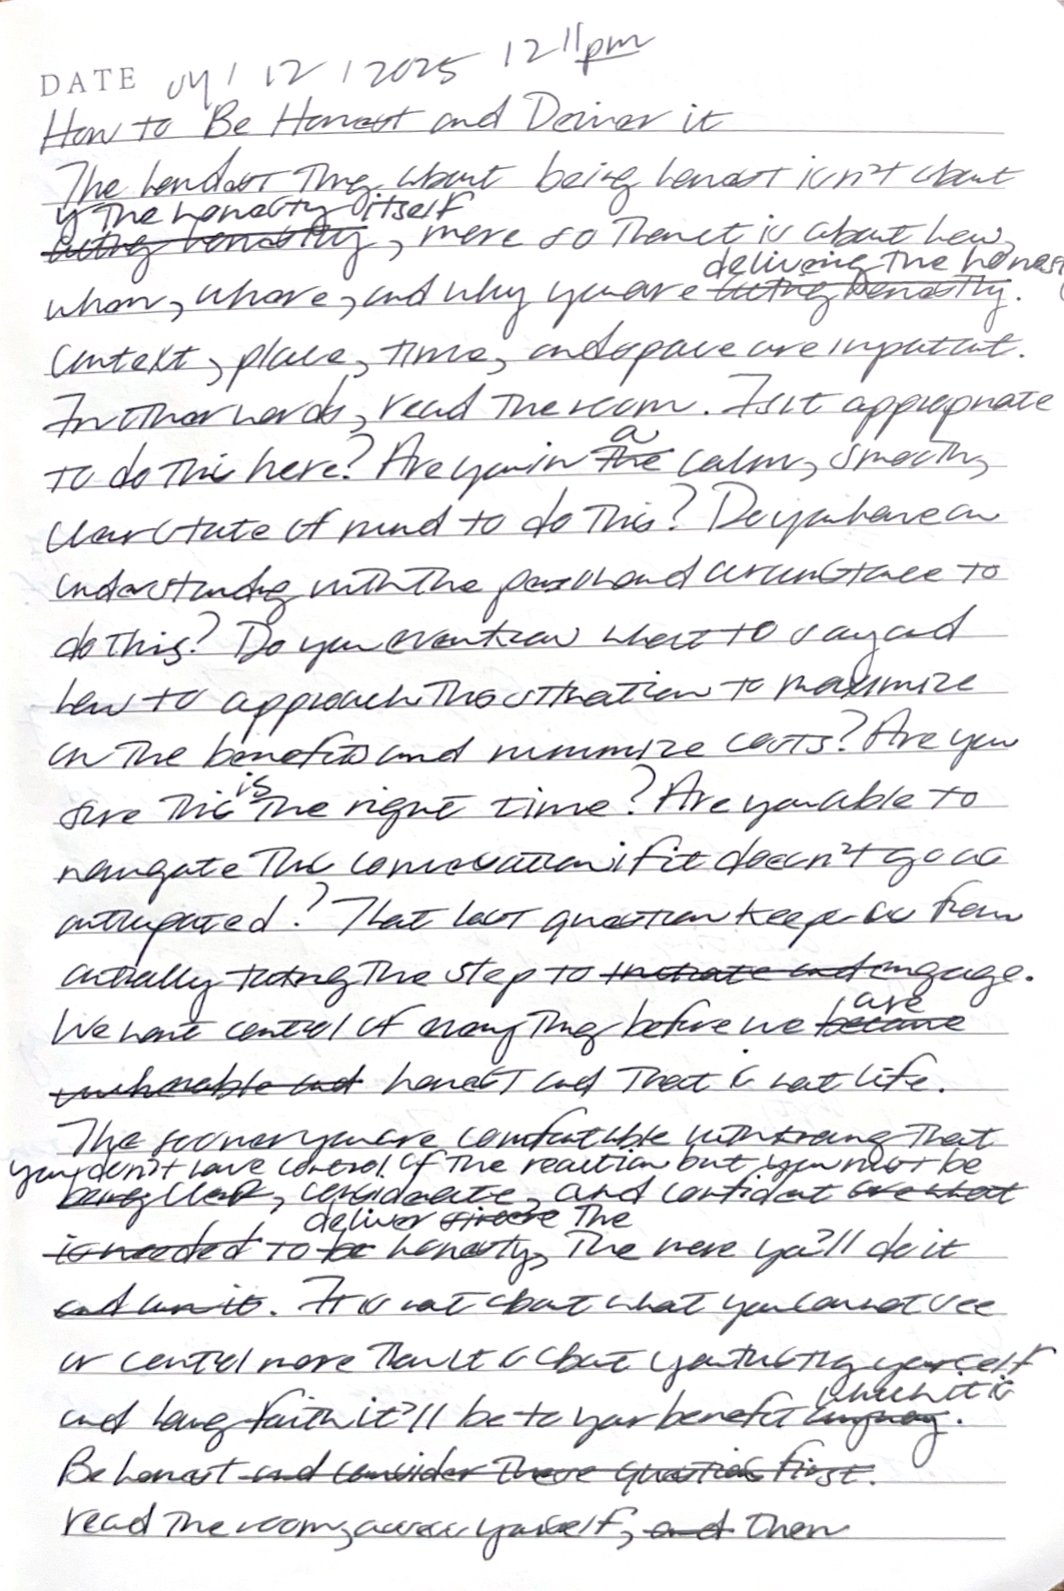 DATE 04 / 12 / 2025 12 11 pm
How to Be Honest and Deliver it
The hardest thing about being honest isn't about
the honesty itself
being honestly, more so than it is about how,
delivering the honesty
whom, where, and why you are being honestly.
Context, place, time, and space are important.
In other words, read the room. Is it appropriate
a
to do this here? Are you in the calm, smooth,
clear state of mind to do this? Do you have an
understanding with the person and circumstance to
do this? Do you even know what to say and
how to approach this situation to maximize
on the benefits and minimize costs? Are you
is
sure this the right time? Are you able to
navigate this conversation if it doesn't go as
anticipated? That last question keeps us from
actually taking the step to initiate and engage.
are
We want control of everything before we became
vulnerable and honest and that is not life.
The sooner you are comfortable with knowing that
you don't have control of the reaction but you must be
being clear, considerate, and confident are what
deliver sincere the
is needed to be honesty, the more you'll do it
and own it. It is not about what you cannot see
or control more than it is about you trusting yourself
which it is
and having faith it'll be to your benefit anyway.
Be honest and consider these questions first.
read the room, assess yourself, and then